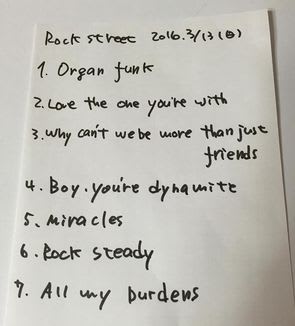 Rock street 2016.3/13(日)
1. Organ funk
2. Love the one you're with
3. Why can't we be more than just
friends
4. Boy. you're dynamite
5. Miracles
6. Rock steady
7. All my burdens